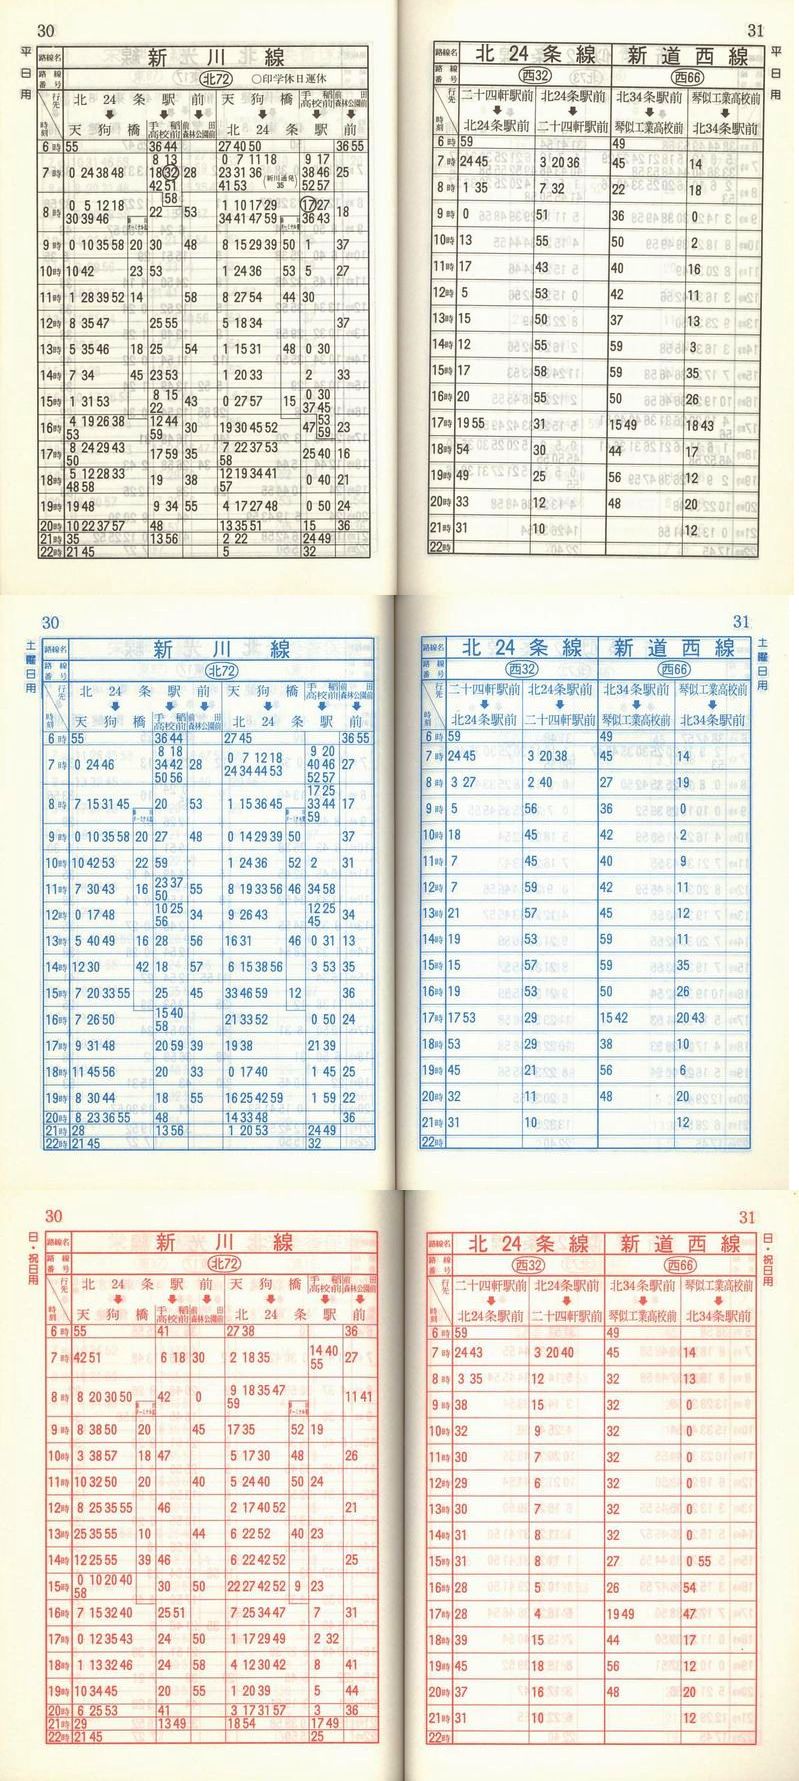 30
平日用
路線名 新川線
路線番号 北72 ○印学休日運休
行先 時刻
北24条駅前 天狗橋 手稲高校前 前田森林公園前
天狗橋 北24条駅前
6時 55 36 44 27 40 50 36 55
7時 0 24 38 48 8 13 18 32 42 51 58 28 0 7 11 18 23 31 36 41 53 (新川通発35) 9 17 38 46 52 57 25
8時 0 5 12 18 30 39 46 22 53 1 10 17 29 34 41 47 59 17 27 36 43 18
9時 0 10 35 58 20 30 48 8 15 29 39 50 1 37
10時 10 42 23 53 1 24 36 53 5 27
11時 1 28 39 52 14 58 8 27 54 44 30
12時 8 35 47 25 55 5 18 34 37
13時 5 35 46 18 25 54 1 15 31 48 0 30
14時 7 34 45 23 53 1 20 33 2 33
15時 1 31 53 8 15 22 43 0 27 57 15 0 30 37 45
16時 4 19 26 38 53 12 44 59 30 19 30 45 52 47 53 59 23
17時 8 24 29 43 50 17 59 35 7 22 37 53 58 25 40 16
18時 5 12 28 33 48 58 19 38 12 19 34 41 57 0 40 21
19時 19 48 9 34 55 4 17 27 48 0 50 24
20時 10 22 37 57 48 13 35 51 15 36
21時 35 13 56 2 22 24 49
22時 21 45 5 32
31
平日用
路線名 北24条線 新道西線
路線番号 西32 西66
行先 時刻
二十四軒駅前 北24条駅前 北34条駅前 琴似工業高校前
北24条駅前 二十四軒駅前 琴似工業高校前 北34条駅前
6時 59 49
7時 24 45 3 20 36 45 14
8時 1 35 7 32 22 18
9時 0 51 36 0
10時 13 55 50 2
11時 17 43 40 16
12時 5 53 42 11
13時 15 50 37 13
14時 12 55 59 3
15時 17 58 59 35
16時 20 55 50 26
17時 19 55 31 15 49 18 43
18時 54 30 44 17
19時 49 25 56 12
20時 33 12 48 20
21時 31 10 12
22時
30
土曜日用
路線名 新川線
路線番号 北72
行先 時刻
北24条駅前 天狗橋 手稲高校前 前田森林公園前
天狗橋 手稲高校前 前田森林公園前 北24条駅前
6時 55 36 44 27 45 36 55
7時 0 24 46 8 18 34 42 50 56 28 0 7 12 18 24 34 44 53 9 20 40 46 52 57 27
8時 7 15 31 45 20 53 1 15 36 45 17 25 33 44 59 17
9時 0 10 35 58 20 27 48 0 14 29 39 50 37
10時 10 42 53 22 59 1 24 36 52 2 31
11時 7 30 43 16 23 37 50 55 8 19 33 56 46 34 58
12時 0 17 48 10 25 56 34 9 26 43 12 25 45 34
13時 5 40 49 16 28 56 16 31 46 0 31 13
14時 12 30 42 18 57 6 15 38 56 3 53 35
15時 7 20 33 55 25 45 33 46 59 12 36
16時 7 26 50 15 40 58 21 33 52 0 50 24
17時 9 31 48 20 59 39 19 38 21 39
18時 11 45 56 20 33 0 17 40 1 45 25
19時 8 30 44 18 55 16 25 42 59 1 59 22
20時 8 23 36 55 48 14 33 48 36
21時 28 13 56 1 20 53 24 49
22時 21 45 32
31
土曜日用
路線名 北24条線 新道西線
路線番号 西32 西66
行先 時刻
二十四軒駅前 北24条駅前 北34条駅前 琴似工業高校前
北24条駅前 二十四軒駅前 琴似工業高校前 北34条駅前
6時 59 49
7時 24 45 3 20 38 45 14
8時 3 27 2 40 27 19
9時 5 56 36 0
10時 18 45 42 2
11時 7 45 40 9
12時 7 59 42 11
13時 21 57 45 12
14時 19 53 59 11
15時 15 57 59 35
16時 19 53 50 26
17時 17 53 29 15 42 20 43
18時 53 29 38 10
19時 45 21 56 6
20時 32 11 48 20
21時 31 10 12
22時
30
日・祝日用
路線名 新川線
路線番号 北72
行先 時刻
北24条駅前 天狗橋 手稲高校前 前田森林公園前
天狗橋 手稲高校前 前田森林公園前 北24条駅前
6時 55 41 27 38 36
7時 42 51 6 18 30 2 18 35 14 40 55 27
8時 8 20 30 50 42 0 9 18 35 47 59 11 41
9時 8 38 50 20 45 17 35 52 19
10時 3 38 57 18 47 5 17 30 48 26
11時 10 32 50 20 40 5 24 40 50 24
12時 8 25 35 55 46 2 17 40 52 21
13時 25 35 55 10 44 6 22 52 40 23
14時 12 25 55 39 46 6 22 42 52 25
15時 0 10 20 40 58 30 50 22 27 42 52 9 23
16時 7 15 32 40 25 51 7 25 34 47 7 31
17時 0 12 35 43 24 50 1 17 29 49 2 32
18時 1 13 32 46 24 58 4 12 30 42 8 41
19時 10 34 45 20 55 1 20 39 5 44
20時 6 25 53 41 3 17 31 57 3 36
21時 29 13 49 18 54 17 49
22時 21 45 25
31
日・祝日用
路線名 北24条線 新道西線
路線番号 西32 西66
行先 時刻
二十四軒駅前 北24条駅前 北34条駅前 琴似工業高校前
北24条駅前 二十四軒駅前 琴似工業高校前 北34条駅前
6時 59 49
7時 24 43 3 20 40 45 14
8時 3 35 12 32 13
9時 38 15 32 0
10時 32 9 32 0
11時 30 7 32 0
12時 29 6 32 0
13時 30 7 32 0
14時 31 8 32 0
15時 31 8 27 0 55
16時 28 5 26 54
17時 28 4 19 49 47
18時 39 15 44 17
19時 45 18 56 12
20時 37 16 48 20
21時 31 10 12
22時